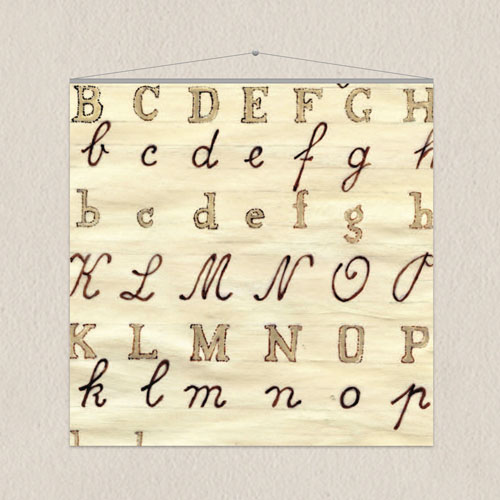 B C D E F Ǧ H
b c d e f g h
b c d e f g h
K L M N O P
K L M N O P
k l m n o p